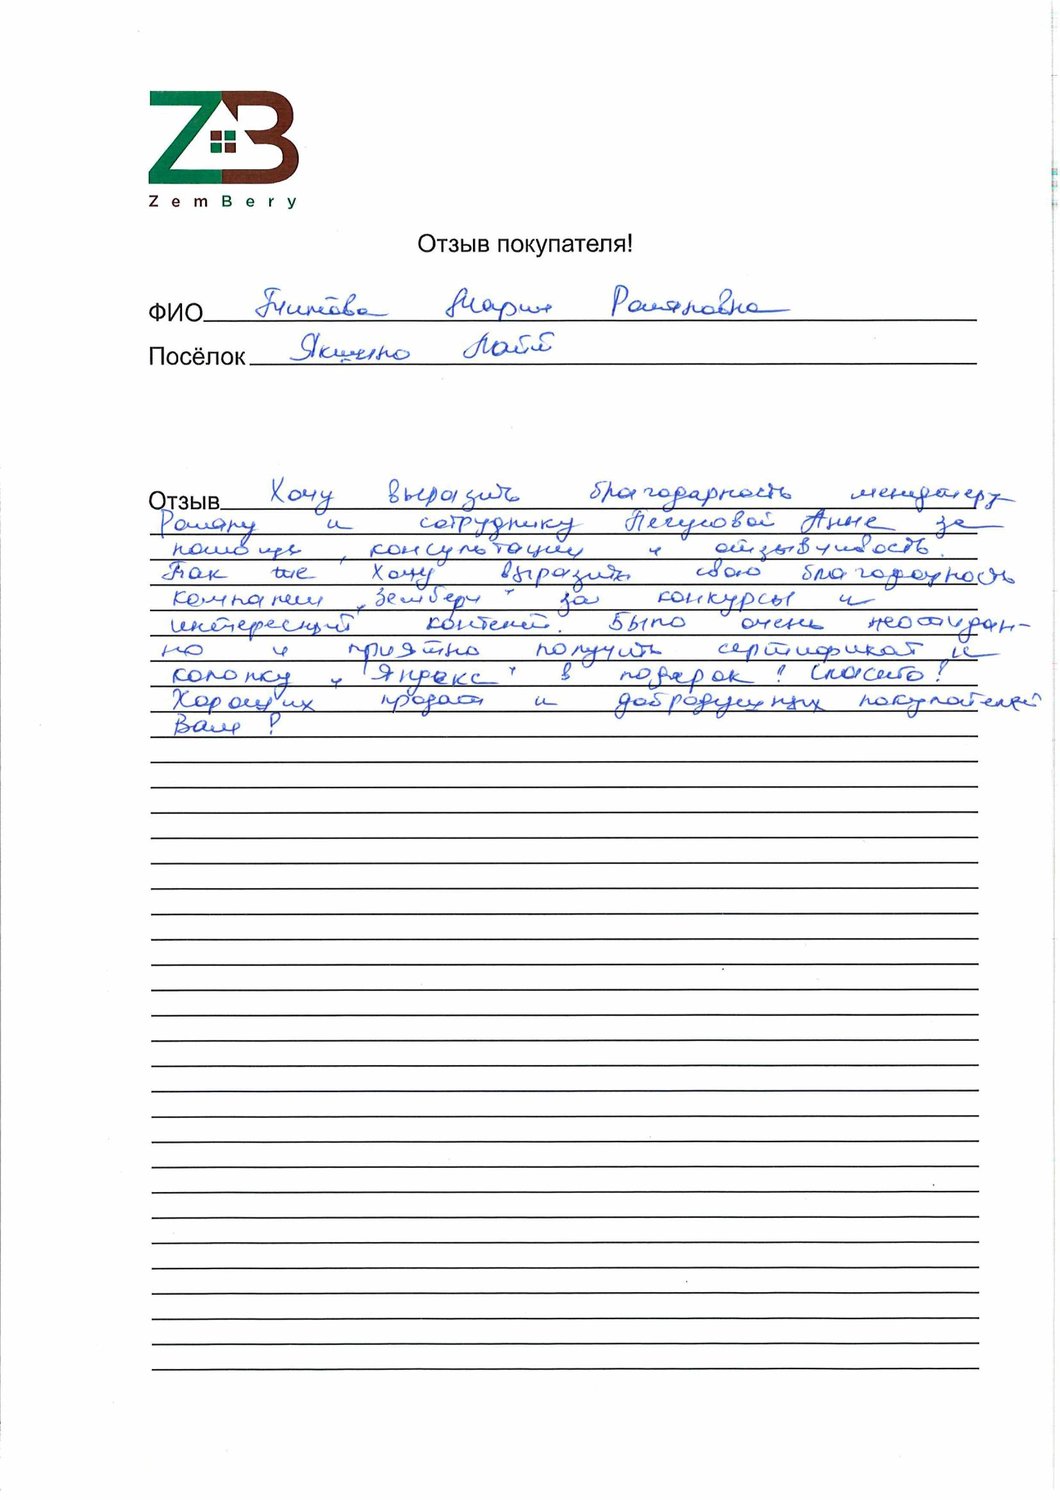 ZB
ZemBery
Отзыв покупателя!
ФИО Мария Романовна
Посёлок Якшино Лайт
Отзыв Хочу выразить благодарность менеджеру
Роману и сотруднику Анне за
помощь, консультации и отзывчивость.
Так же хочу выразить свою благодарность
компании "Зембери" за конкурсы и
интересный контент. Было очень неожидан-
но и приятно получить сертификат и
колонку "Яндекс" в подарок! Спасибо!
Хороших продаж и добродушных покупателей
Вам!